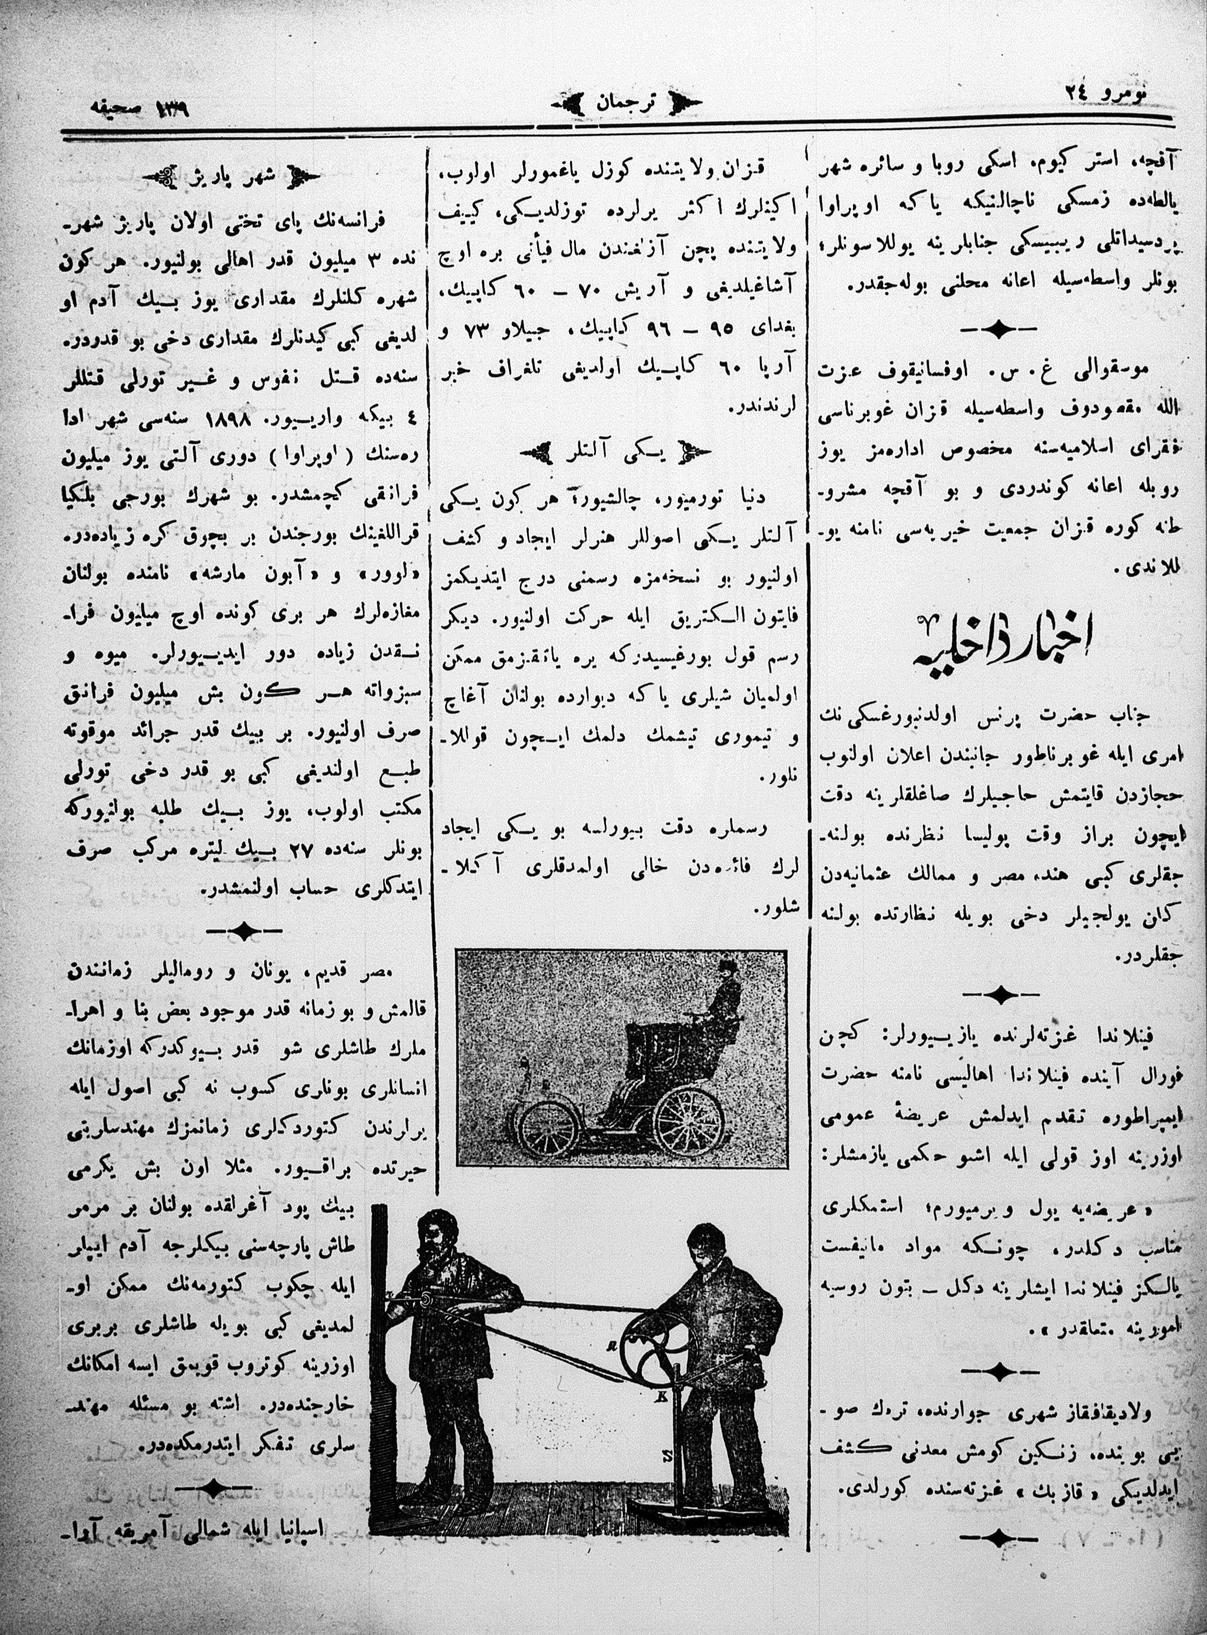 نومرو ٢٤
ترجمان
١٣٩ صحیفه
آقچه، استر کیوم، اسکی روبا و سائره شهر
یالطه‌ده زمسکی ناچالنیکه یا که اوپراوا
پردسیداتلی ریبیسکی جنابلرینه یوللاسونلر؛
بونلر واسطه‌سیله اعانه محلنی بوله‌جقدر.
موسقوالی غ. س. اوفسانیقوف عزت
الله مقصودوف واسطه‌سیله قزان غوبرناسی
فقرای اسلامیه‌سنه مخصوص اداره‌مز یوز
روبله اعانه کوندردی و بو آقچه مشرو-
طنه کوره قزان جمعیت خیریه‌سی نامنه یو-
للاندی.
اخبار داخلیه
جناب حضرت پرنس اولدنبورغسکی نك
امری ایله غوبرناطور جانبندن اعلان اولنوب
حجازدن قایتمش حاجیلرك صاغلقلرینه دقت
ایچون براز وقت پولیسا نظرنده بولنه-
جقلری کبی هند، مصر و ممالك عثمانیه‌دن
کلن یولجیلر دخی بویله نظارتده بولنه
جقلردر.
فینلاندا غزته‌لرنده یازیورلر: کچن
فورال آینده فینلاندا اهالیسی نامنه حضرت
ایمپراطوره تقدم ایدلمش عریضهٔ عمومی
اوزرینه اوز قولی ایله اشو حکمی یازمشلر:
«عریضه‌یه یول ویرمیورم؛ استمکلری
مناسب دکلدر، چونکه مواد مانیفست
یالکز فینلاندا ایشلرینه دکل — بتون روسیه
امورینه متعلقدر».
ولادیقافقاز شهری جوارنده، ترك صو-
یی بوینده، زنکین کومش معدنی کشف
ایدلدیکی «قازبك» غزته‌سنده کورلدی.
قزان ولایتنده کوزل یاغمورلر اولوب،
اکینلرك اکثر یرلرده توزلدیکی، کییف
ولایتنده پچن آزلغندن مال فیأتی بره اوچ
آشاغیلدیغی و آریش ٧٠ — ٦٠ کاپیك،
بغدای ٩٥ — ٩٦ کاپیك، جیلاو ٧٣ و
آرپا ٦٠ کاپیك اولدیغی تلغراف خبر
لرندندر.
یکی آلتلر
دنیا تورمیور، چالشیور؛ هر کون یکی
آلتلر یکی اصوللر هنرلر ایجاد و کشف
اولنیور بو نسخه‌مزه رسمنی درج ایتدیکمز
فایتون الکتریق ایله حرکت اولنیور. دیکر
رسم قول بورغیسیدرکه یره یاتقزمق ممکن
اولمیان شیلری یا که دیوارده بولنان آغاچ
و تیموری تیشمك دلمك ایچون قوللا-
نلور.
رسملره دقت بیورلسه بو یکی ایجاد
لرك فائده‌دن خالی اولمدقلری آکلا-
شلور.
R
K
S
شهر پاریژ
فرانسه‌نك پای تختی اولان پاریژ شهر-
نده ٣ میلیون قدر اهالی بولنیور. هر کون
شهره کلنلرك مقداری یوز بیك آدم او
لدیغی کبی کیدنلرك مقداری دخی بو قدردر.
سنه‌ده قتل نفوس و غیر تورلی قتللر
٤ بیکه واریور. ١٨٩٨ سنه‌سی شهر ادا
ره‌سنك (اوپراوا) دوری آلتی یوز میلیون
فرانقی کچمشدر. بو شهرك بورجی بلکیا
قراللغینك بورجندن بر بچوق کره زیاده‌در.
«لوور» و «آبون مارشه» نامنده بولنان
مغازه‌لرك هر بری کونده اوچ میلیون فرا-
نقدن زیاده دور ایدیورلر. میوه و
سبزواته هر کون بش میلیون فرانق
صرف اولنیور. بر بیك قدر جرائد موقوته
طبع اولندیغی کبی بو قدر دخی تورلی
مکتب اولوب، یوز بیك طلبه بولنیورکه
بونلر سنه‌ده ٢٧ بیك لیتره مرکب صرف
ایتدکلری حساب اولنمشدر.
مصر قدیم، یونان و رومالیلر زماننندن
قالمش و بو زمانه قدر موجود بعض بنا و اهرا-
ملرك طاشلری شو قدر بیوکدرکه اوزمانك
انسانلری بونلری کسوب نه کبی اصول ایله
یرلرندن کتوردکلری زمانمزك مهندسلرینی
حیرتده براقیور. مثلا اون بش یکرمی
بیك پود آغرلقده بولنان بر مرمر
طاش پارچه‌سنی بیکلرجه آدم ایپلر
ایله چکوب کتورمه‌نك ممکن او-
لمدیغی کبی بویله طاشلری بربری
اوزرینه کوتروب قویمق ایسه امکانك
خارجنده‌در. اشته بو مسئله مهند-
سلری تفکر ایتدرمکده‌در.
اسپانیا ایله شمالی آمریقه آرا-